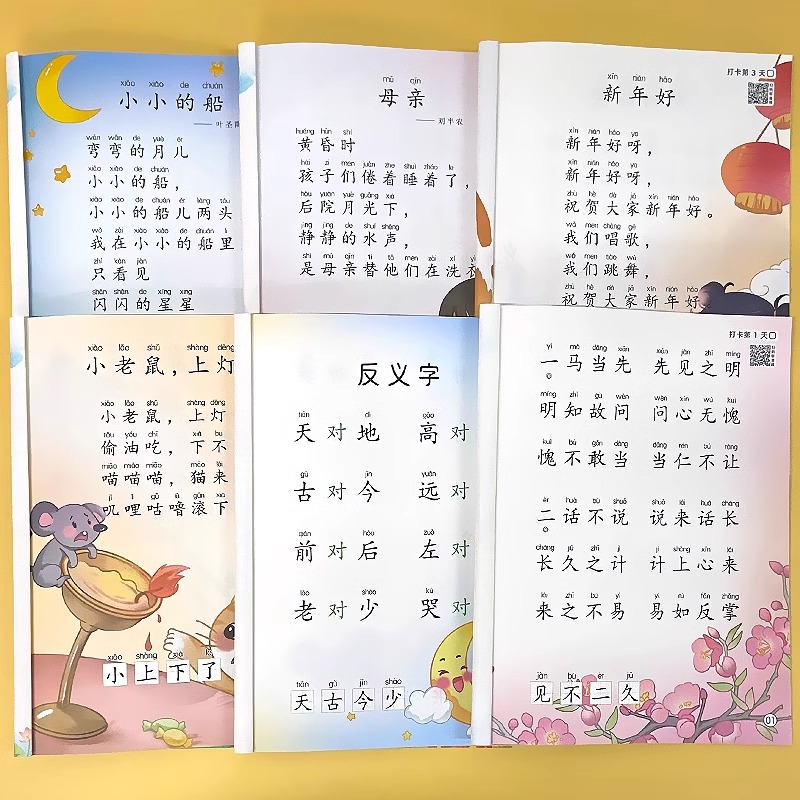 xiǎo xiǎo de chuán
小小的船
——叶圣
wān wān de yuè ér
弯弯的月儿
xiǎo xiǎo de chuán
小小的船，
xiǎo xiǎo de chuán ér liǎng tóu
小小的船儿两头
wǒ zài xiǎo xiǎo de chuán lǐ
我在小小的船里
zhǐ kàn jiàn
只看见
shǎn shǎn de xīng xīng
闪闪的星星
mǔ qīn
母亲
——刘半农
huáng hūn shí
黄昏时
hái zi men juàn zhe shuì zháo le
孩子们倦着睡着了，
hòu yuàn yuè guāng xià
后院月光下，
jìng jìng de shuǐ shēng
静静的水声，
shì mǔ qīn tì tā men zài xǐ
是母亲替他们在洗衣
打卡第3天
xīn nián hǎo
新年好
xīn nián hǎo ya
新年好呀，
xīn nián hǎo ya
新年好呀，
zhù hè dà jiā xīn nián hǎo
祝贺大家新年好。
wǒ men chàng gē
我们唱歌，
wǒ men tiào wǔ
我们跳舞，
zhù hè dà jiā xīn nián hǎo
祝贺大家新年好
xiǎo lǎo shǔ shàng dēng
小老鼠，上灯
xiǎo lǎo shǔ shàng dēng
小老鼠，上灯
tōu yóu chī xià bu
偷油吃，下不
miāo miāo miāo māo lái
喵喵喵，猫来
jī lǐ gū lū gǔn xià
叽哩咕噜滚下
xiǎo shàng xià le
小上下了
反义字
tiān dì gāo
天对地 高对
gǔ jīn yuǎn
古对今 远对
qián hòu zuǒ
前对后 左对
lǎo shào kū
老对少 哭对
tiān gǔ jīn shǎo
天古今少
打卡第1天
yì mǎ dāng xiān xiān jiàn zhī míng
一马当先 先见之明
míng zhī gù wèn wèn xīn wú kuì
明知故问 问心无愧
kuì bù gǎn dāng dāng rén bú ràng
愧不敢当 当仁不让
èr huà bù shuō shuō lái huà cháng
二话不说 说来话长
cháng jiǔ zhī jì jì shàng xīn lái
长久之计 计上心来
lái zhī bú yì yì rú fǎn zhǎng
来之不易 易如反掌
jiàn bù èr jiǔ
见不二久
01